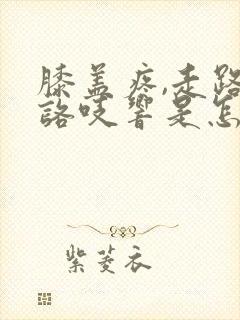 膝盖疼,走路
咯吱响是怎
紫菱衣